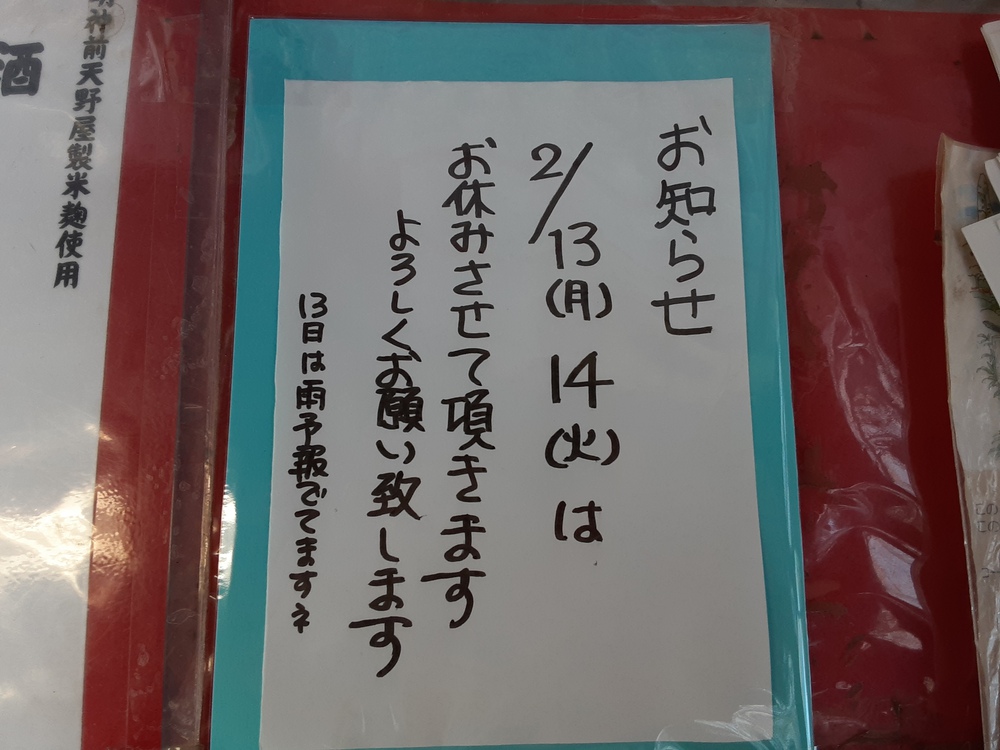 お知らせ
2/13(月) 14(火)は
お休みさせて頂きます
よろしくお願い致します
13日は雨予報でてますネ
神前天野屋製米麹使用
酒